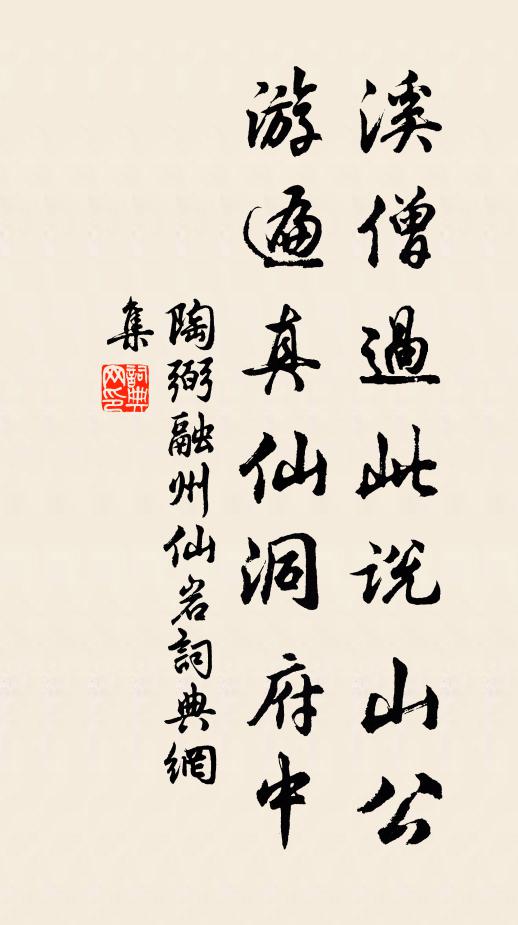 溪僧過此説山公
游遍真仙洞府中
陶弼融州仙岩詞典網
集
詞典網印